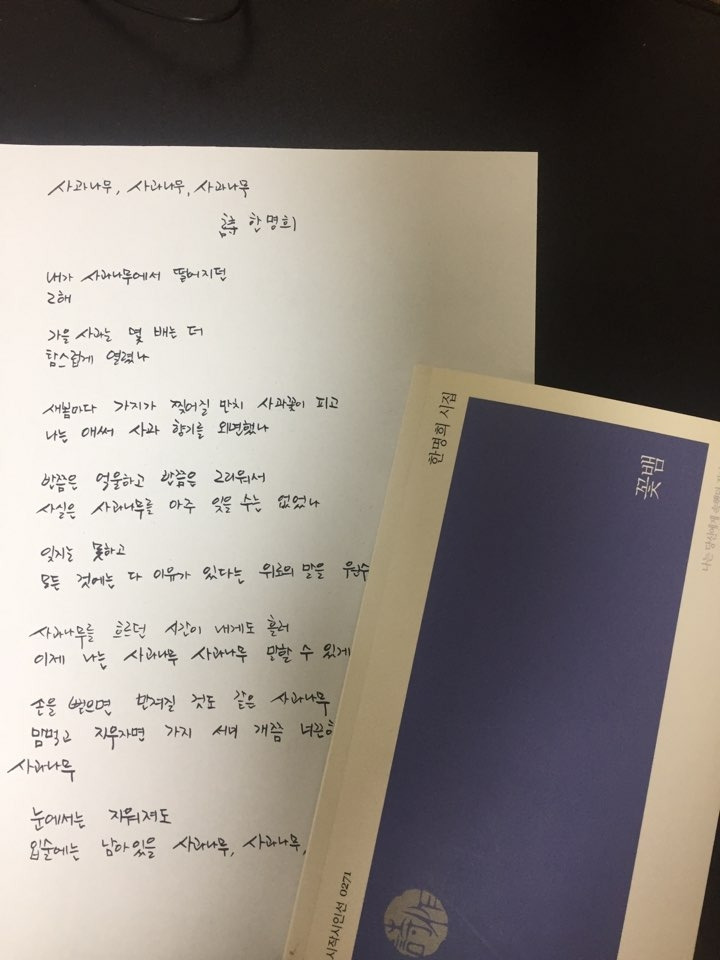 사과나무, 사과나무, 사과나무
詩 한명희
내가 사과나무에서 떨어지던
그해
가을 사과는 몇 배는 더
탐스럽게 열렸나
새봄마다 가지가 찢어질 만치 사과꽃이 피고
나는 애써 사과 향기를 외면했나
한쯤은 억울하고 한쯤은 그리워서
사실은 사과나무를 아주 잊을 수는 없었나
잊지는 못하고
모든 것에는 다 이유가 있다는 위로의 말을
사과나무를 흐르던 시간이 내게도 흘러
이제 나는 사과나무 사과나무 말할 수 있게
손을 뻗으면 만져질 것도 같은 사과나무
맘먹고 지우자면 가지 서너 개쯤 너끈히
사과나무
눈에서는 지워져도
입술에는 남아있을 사과나무, 사과나무,
한명희 시집
꽃뱀
나는 당신에게
시작시인선 0271
詩作